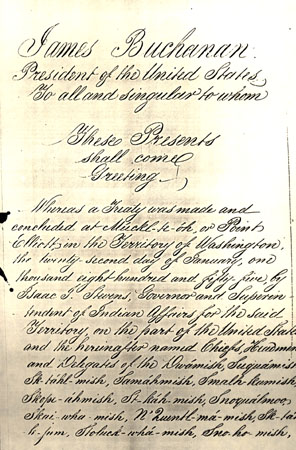 James Buchanan.
President of the United States,
To all and singular to whom
These Presents
shall come,
Greeting.
Whereas a Treaty was made and
concluded at Muckl-te-óh, or Point
Elliott, in the Territory of Washington,
the twenty second day of January, one
thousand eight hundred and fifty five, by
Isaac I. Stevens, Governor and Superin
tendent of Indian Affairs for the said
Territory, on the part of the United States
and the hereinafter named Chiefs, Headmen
and Delegates of the Dwámish, Suquámish
Sk-táhl-mish, Samáhmish, Smalh-kamish
Skope-áhmish, St-káh-mish, Snoqualmoo,
Skai-wha-mish, N'Quentl-má-mish, Sk-táh-
le-jum, Stoluck-whá-mish, Sno-ho-mish,